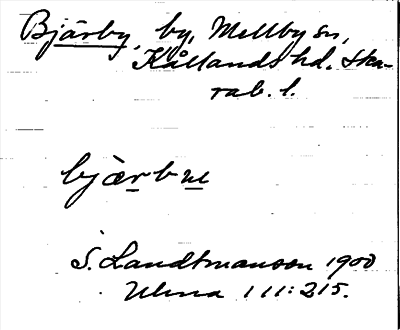 Bjärby, by, Mellby sn,
Kållands hd. Ska-
rab. l.
bjærbne
S. Landtmanson 1900
Ulma 111:215.